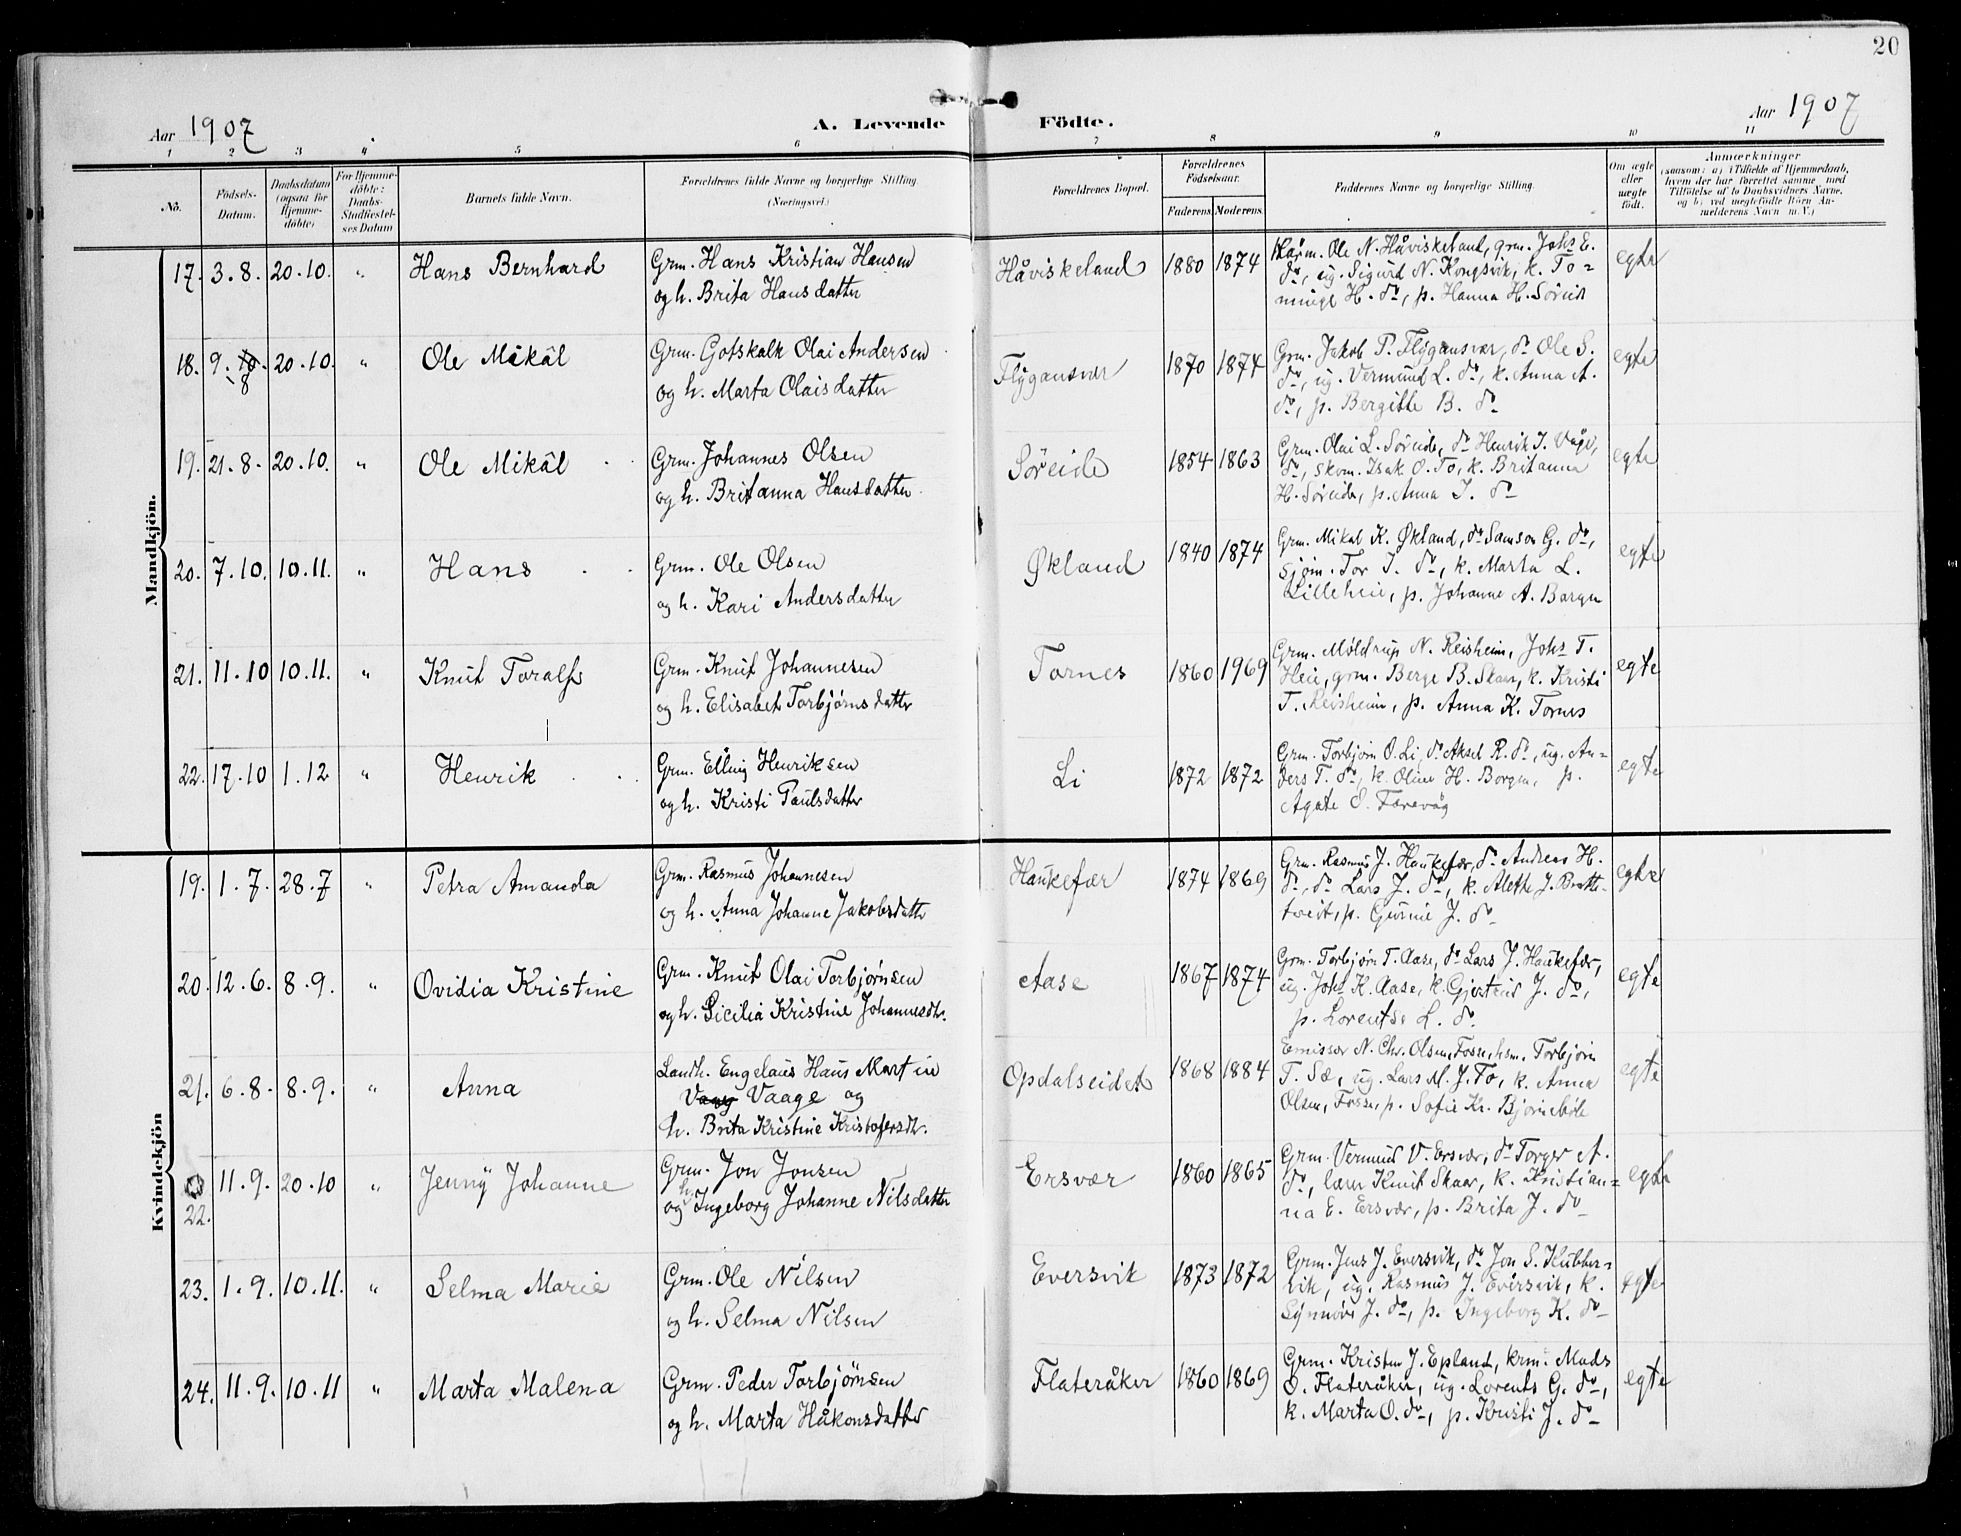 20
Aar 1907
A. Levende Födte.
Aar 1907
1 2 3 4 5 6 7 8 9 10 11
No.
Födsels-Datum.
Daabsdatum (ogsaa for Hjemmedöbte)
For Hjemmedöbte: Daabs-Stadfæstelses Datum
Barnets fulde Navn.
Forældrenes fulde Navne og borgerlige Stilling.
(Næringsvei.)
Forældrenes Bopæl.
Forældrenes Födselsaar.
Faderens. Moderens.
Faddernes Navne og borgerlige Stilling.
Om ægte eller uægte födt.
Anmærkninger
(saasom: a) i Tilfælde af Hjemmedaab,
hvem der har forrettet samme med
Tilföielse af to Daabsvidners Navne,
og b) ved uægtefödte Börn An-
melderens Navn m. V.)
Mandkjön.
17. 3.8. 20.10. " Hans Bernhard
Grm. Hans Kristian Hansen
og h. Brita Hansdatter
Håviskeland 1880 1874
Ole N. Håviskeland, grm. Johs E.
do, ug. Sigurd N. Kongsvik, k. To=
H. do, p. Hanna H. Söreid
egte
18. 9. 10. 8 20.10. " Ole Mikâl
Grm. Gotskalk Olai Andersen
og h. Marta Olaisdatter
Flygansvær 1870 1874
Grm. Jakob P. Flygansvær, do Ole S.
do, ug. Vermund L. do, k. Anna A.
do, p. Bergitte B. do
egte
19. 21.8. 20.10. " Ole Mikâl
Grm. Johannes Olsen
og h. Britanna Hansdatter
Söreide 1854 1863
Grm. Olai L. Söreide, do Henrik J. Våge,
do, skom. Isak O. To, k. Britanna
H. Söreide, p. Anna J. do
egte
20. 7.10. 10.11. " Hans
Grm. Ole Olsen
og h. Kari Andersdatter
Økland 1840 1874
Grm. Mikal K. Økland, do Samson G. do,
sjöm. Tor J. do, k. Marta L.
Lilleheie, p. Johanne A. Borgen
egte
21. 11.10 10.11. " Knut Toralf
Grm. Knut Johannesen
og h. Elisabet Torbjørnsdatter
Tornes 1860 1969
Grm. Møldrup N. Reisheim, Johs T.
Heie, grm. Berge B. Skaar, k. Kristi
T. Reisheim, p. Anna K. Tornes
egte
22. 17.10 1.12. " Henrik
Grm. Elling Henriksen
og h. Kristi Paulsdatter
Li 1872 1872
Grm. Torbjørn O. Li, do Aksel R. do, ug. An=
ders T. do, k. Oline H. Borgen, p.
Agate S. Færevåg
egte
Kvindekjön
19. 1.7. 28.7 " Petra Amanda
Grm. Rasmus Johannesen
og h. Anna Johanne Jakobsdattr
Haukefær 1874 1869
Grm. Rasmus J. Haukefær, do Andreas H.
do, do Lars J. do, k. Alethe J. Bratte-
tveit, p. Gurine J. do
egte
20. 12.6. 8.9. " Ovidia Kristine
Grm. Knut Olai Torbjørnsen
og h. Sicilia Kristine Johannesdtr.
Aase 1867 1874
Grm. Torbjørn T. Aase, do Lars J. Haukefær,
ug. Johs K. Aase, k. Gjertrud J. do,
p. Lorentse L. do
egte
21. 6.8. 8.9. " Anna
Landh. Engelaus Hans Martin
Vaage og
h. Brita Kristine Kristofersdtr.
Opdalseidet 1868 1884
Emissær N. Chr. Olsen, Fosse, hsm. Torbjörn
T. Sæ, ug. Lars M. J. To, k. Anna
Olsen, Fosse, p. Sofie Kr. Bjørnebøle
egte
22. 11.9. 20.10 " Jenny Johanne
Grm. Jon Jonsen
og h. Ingeborg Johanne Nilsdatter
Ersvær 1860 1865
Grm. Vermund V. Ersvær, do Torger A.
do, lærer Knut Skaar, k. Kristian=
na E. Ersvær, p. Brita J. do
egte
23. 1.9. 10.11. " Selma Marie
Grm. Ole Nilsen
og h. Selma Nilsen
Eversvik 1873 1872
Grm. Jens J. Eversvik, do Jon S. Klubber=
vik, ug. Rasmus J. Eversvik, k.
Synnöve J. do, p. Ingeborg K. do
egte
24. 11.9. 10.11 " Marta Malena
Grm. Peder Torbjörnsen
og h. Marta Håkonsdatter
Flateråker 1860 1869
Grm. Kristen J. Epland, krm. Mads
O. Flateråker, ug. Lorents G. do,
k. Marta O. do, p. Kristi J. do
egte